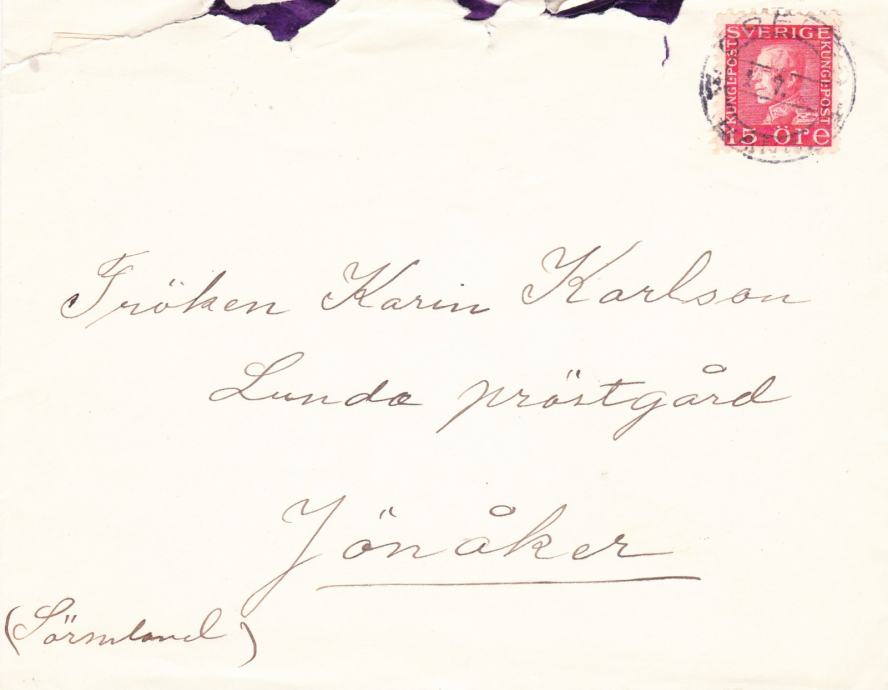 SVERIGE
KUNGL:POST
KUNGL:POST
15 ÖRE
Fröken Karin Karlson
Lunda pröstgård
Jönåker
(Sörmland)